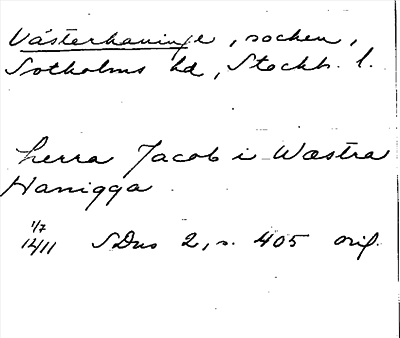 Västerhaninge, socken,
Sotholms hd, Stockh. l.
herra Jacob i Wæstra
Hanigga
1/7
1411 SDns 2, s. 405 orig.